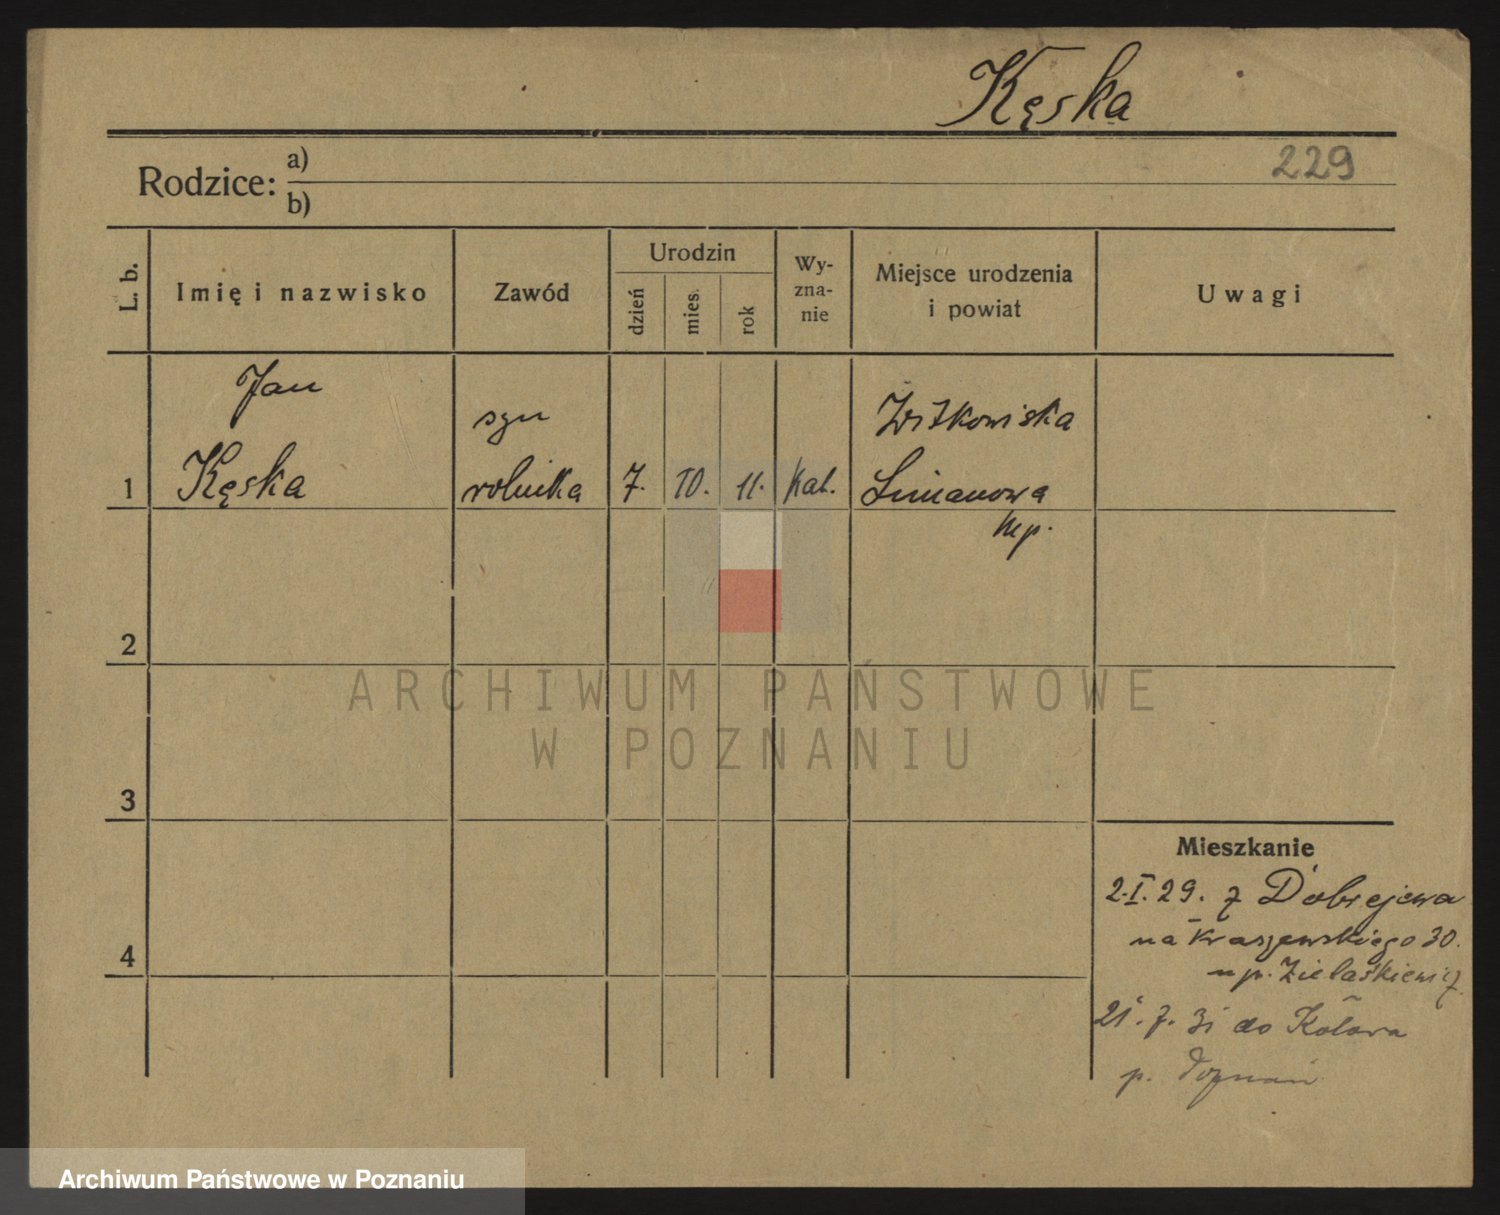 Kęska
229
Rodzice: a)
b)
L. b.
Imię i nazwisko
Zawód
Urodzin
dzień
mies.
rok
Wy-
zna-
nie
Miejsce urodzenia
i powiat
Uwagi
Jan
Kęska
syn
rolnika
7.
10.
11.
kat.
Limanowa
Mp.
1
2
3
4
Mieszkanie
2.I.29. z Dobrojewa
na Kraszewskiego 30.
u p. Zielaśkiewicz
21.7.31 do
p. Poznań
ARCHIWUM PAŃSTWOWE
W POZNANIU
Archiwum Państwowe w Poznaniu